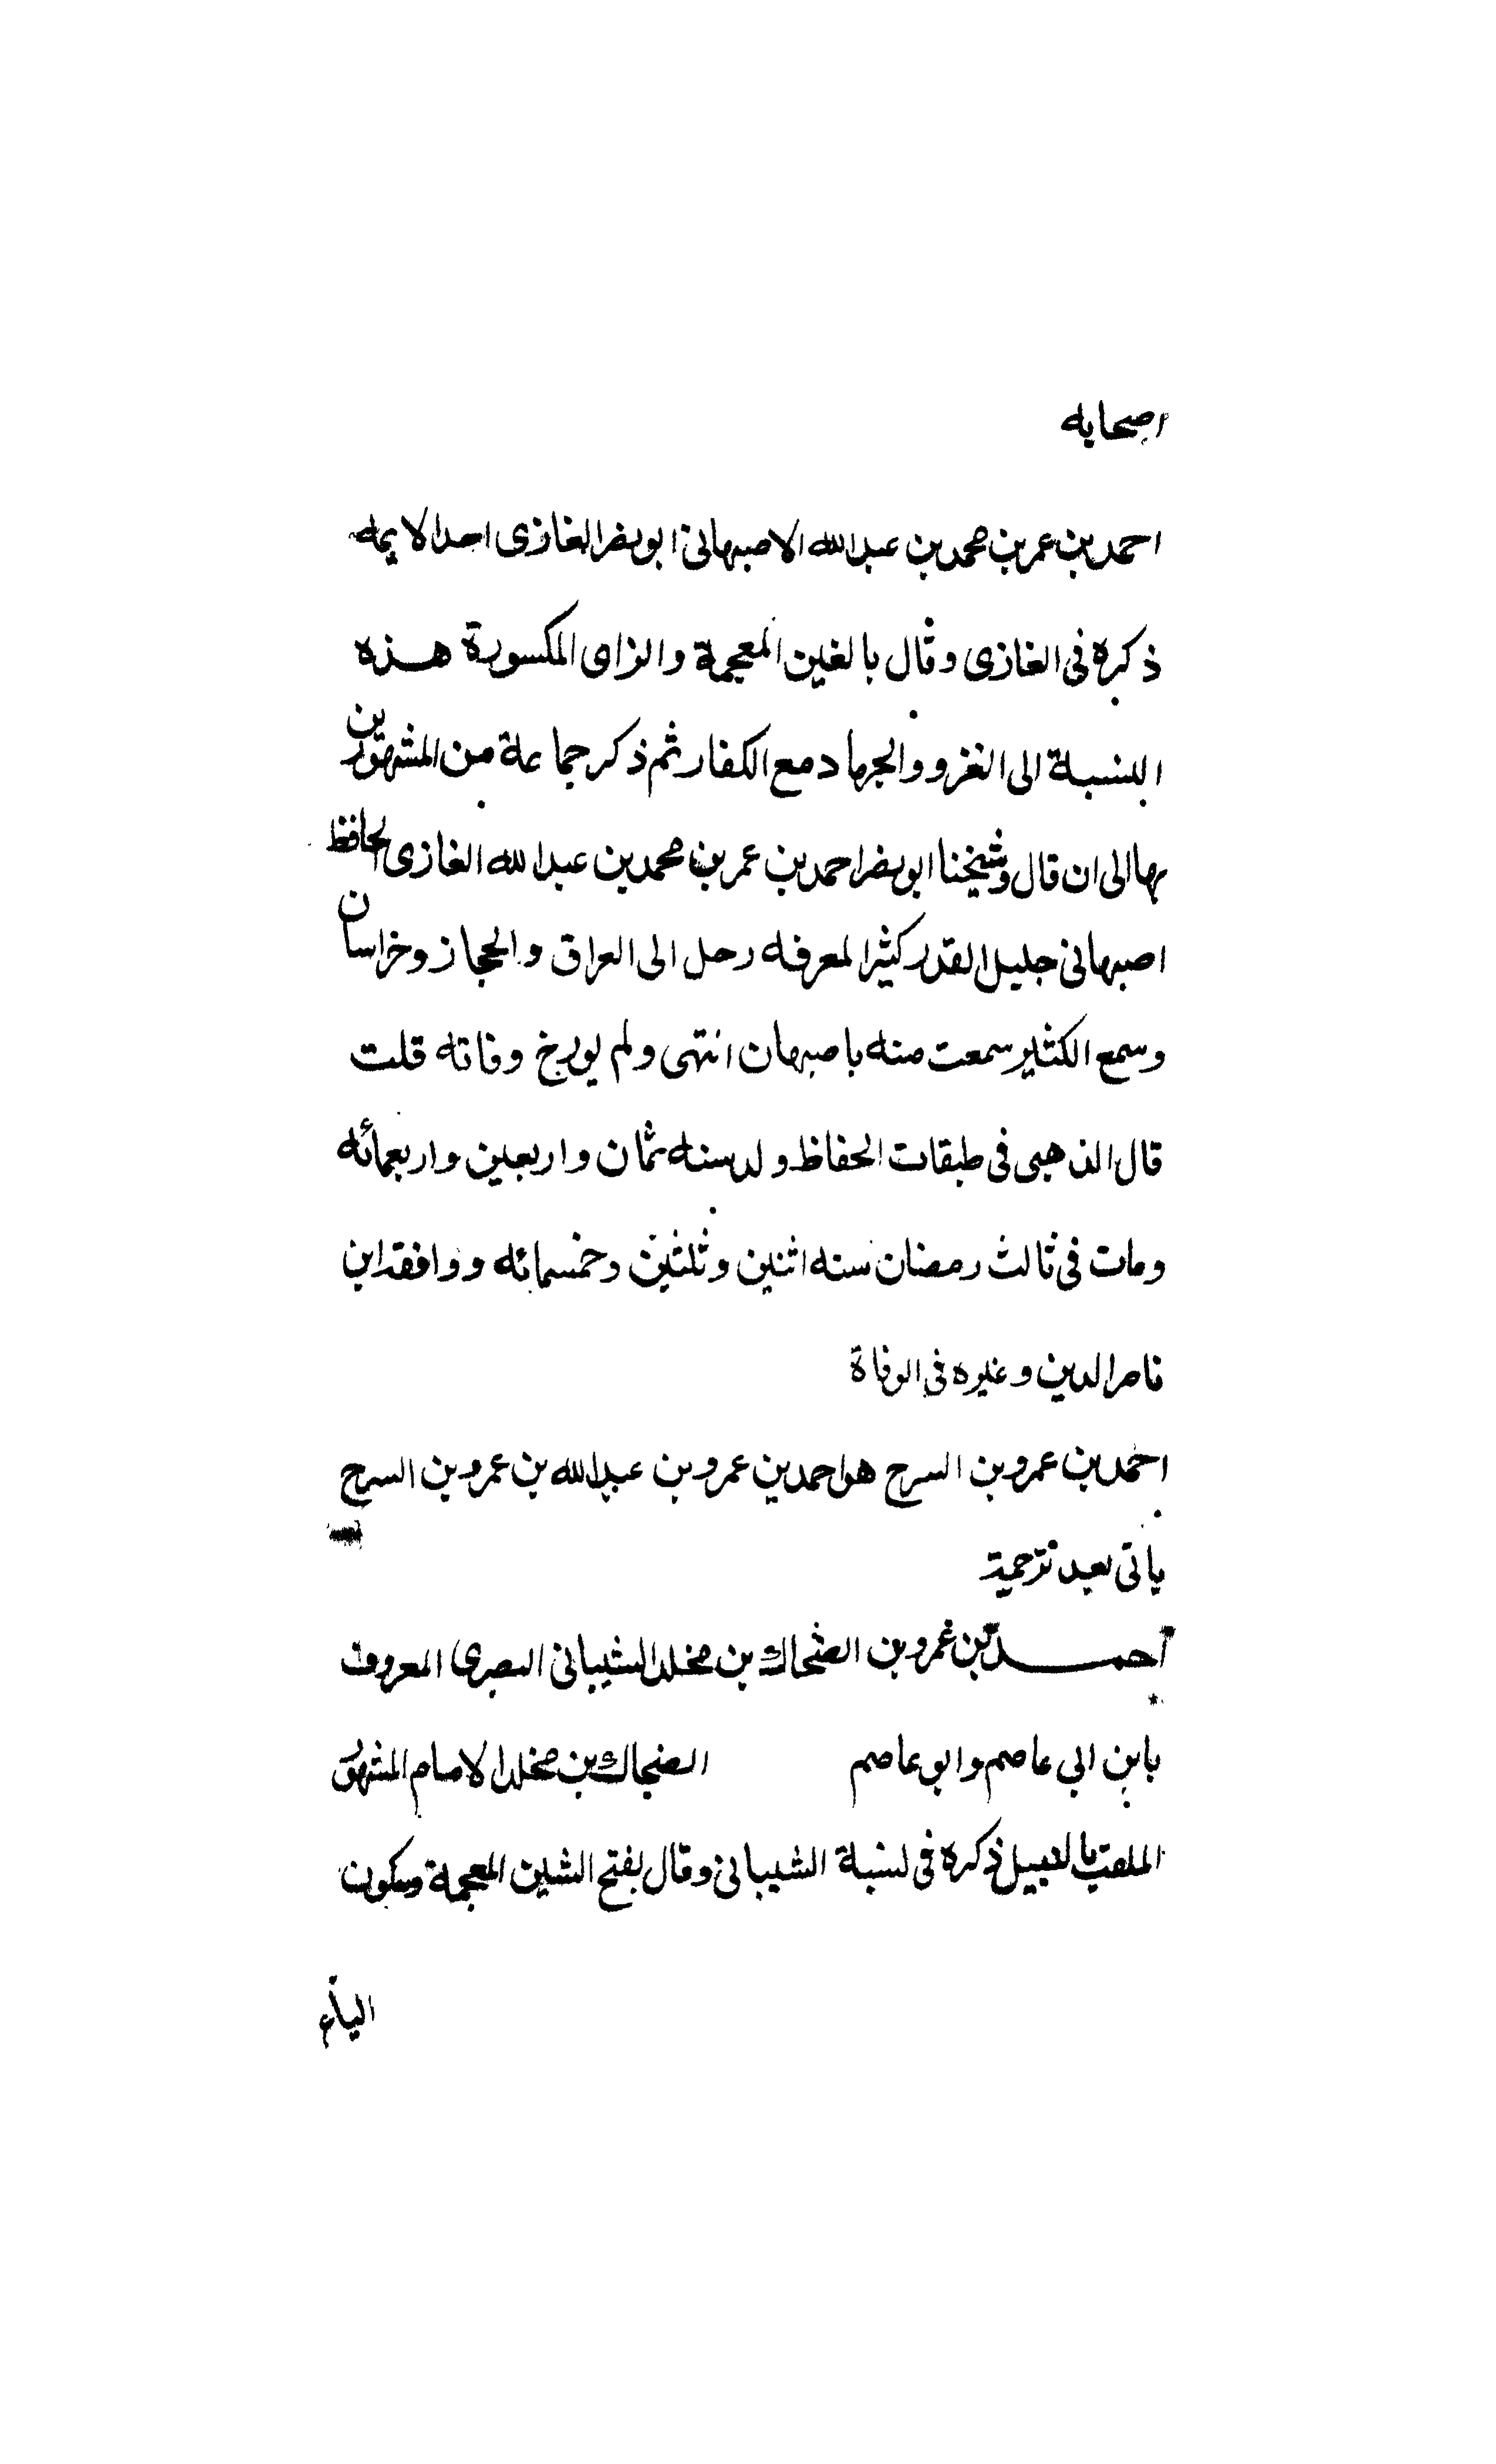 اصحابه
احمد بن عمر بن محمد بن عبد الله الاصبهانى ابو نصر الغازى احد الايمه
ذكره فى الغازى وقال بالغين المعجمة والزاى المكسورة هذه
النسبة الى الغزو والجهاد مع الكفار ثم ذكر جماعة من المشهورين
بها الى ان قال وشيخنا ابو نصر احمد بن عمر بن محمد بن عبد الله الغازى الحافظ
اصبهانى جليل القدر كثير المعرفه رحل الى العراق والحجاز وخراسان
وسمع الكثير سمعت منه باصبهان انتهى ولم يورخ وفاته قلت
قال الذهبى فى طبقات الحفاظ ولد سنه ثمان واربعين واربعمائه
ومات فى ثالث رمضان سنه اثنين وثلثين وخمسمائه ووافقه ابن
ناصر الدين وغيره فى الوفاة
احمد بن عمرو بن السرح هو احمد بن عمرو بن عبد الله بن عمرو بن السرح
ياتى بعد ترجمة
احمد بن عمرو بن الضحاك بن مخلد الشيبانى البصرى المعروف
بابن ابى عاصم وابو عاصم الضحاك بن مخلد الامام المشهور
الملقب بالنبيل ذكره فى نسبة الشيبانى وقال بفتح الشين المعجمة وسكون
الياء